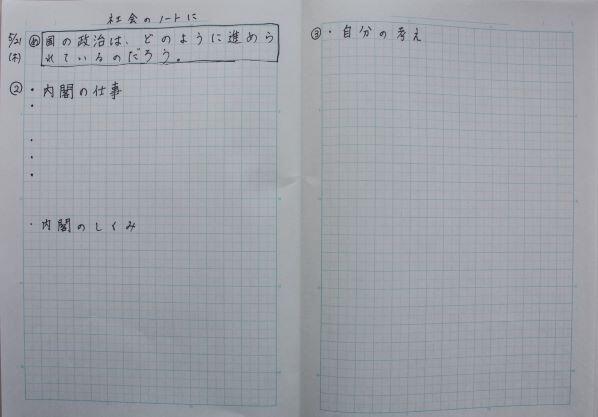 社会のノートに
5/21 め 国の政治は、どのように進めら
(木) れているのだろう。
② ・内閣の仕事
・
・
・
・
・内閣のしくみ
③ ・自分の考え